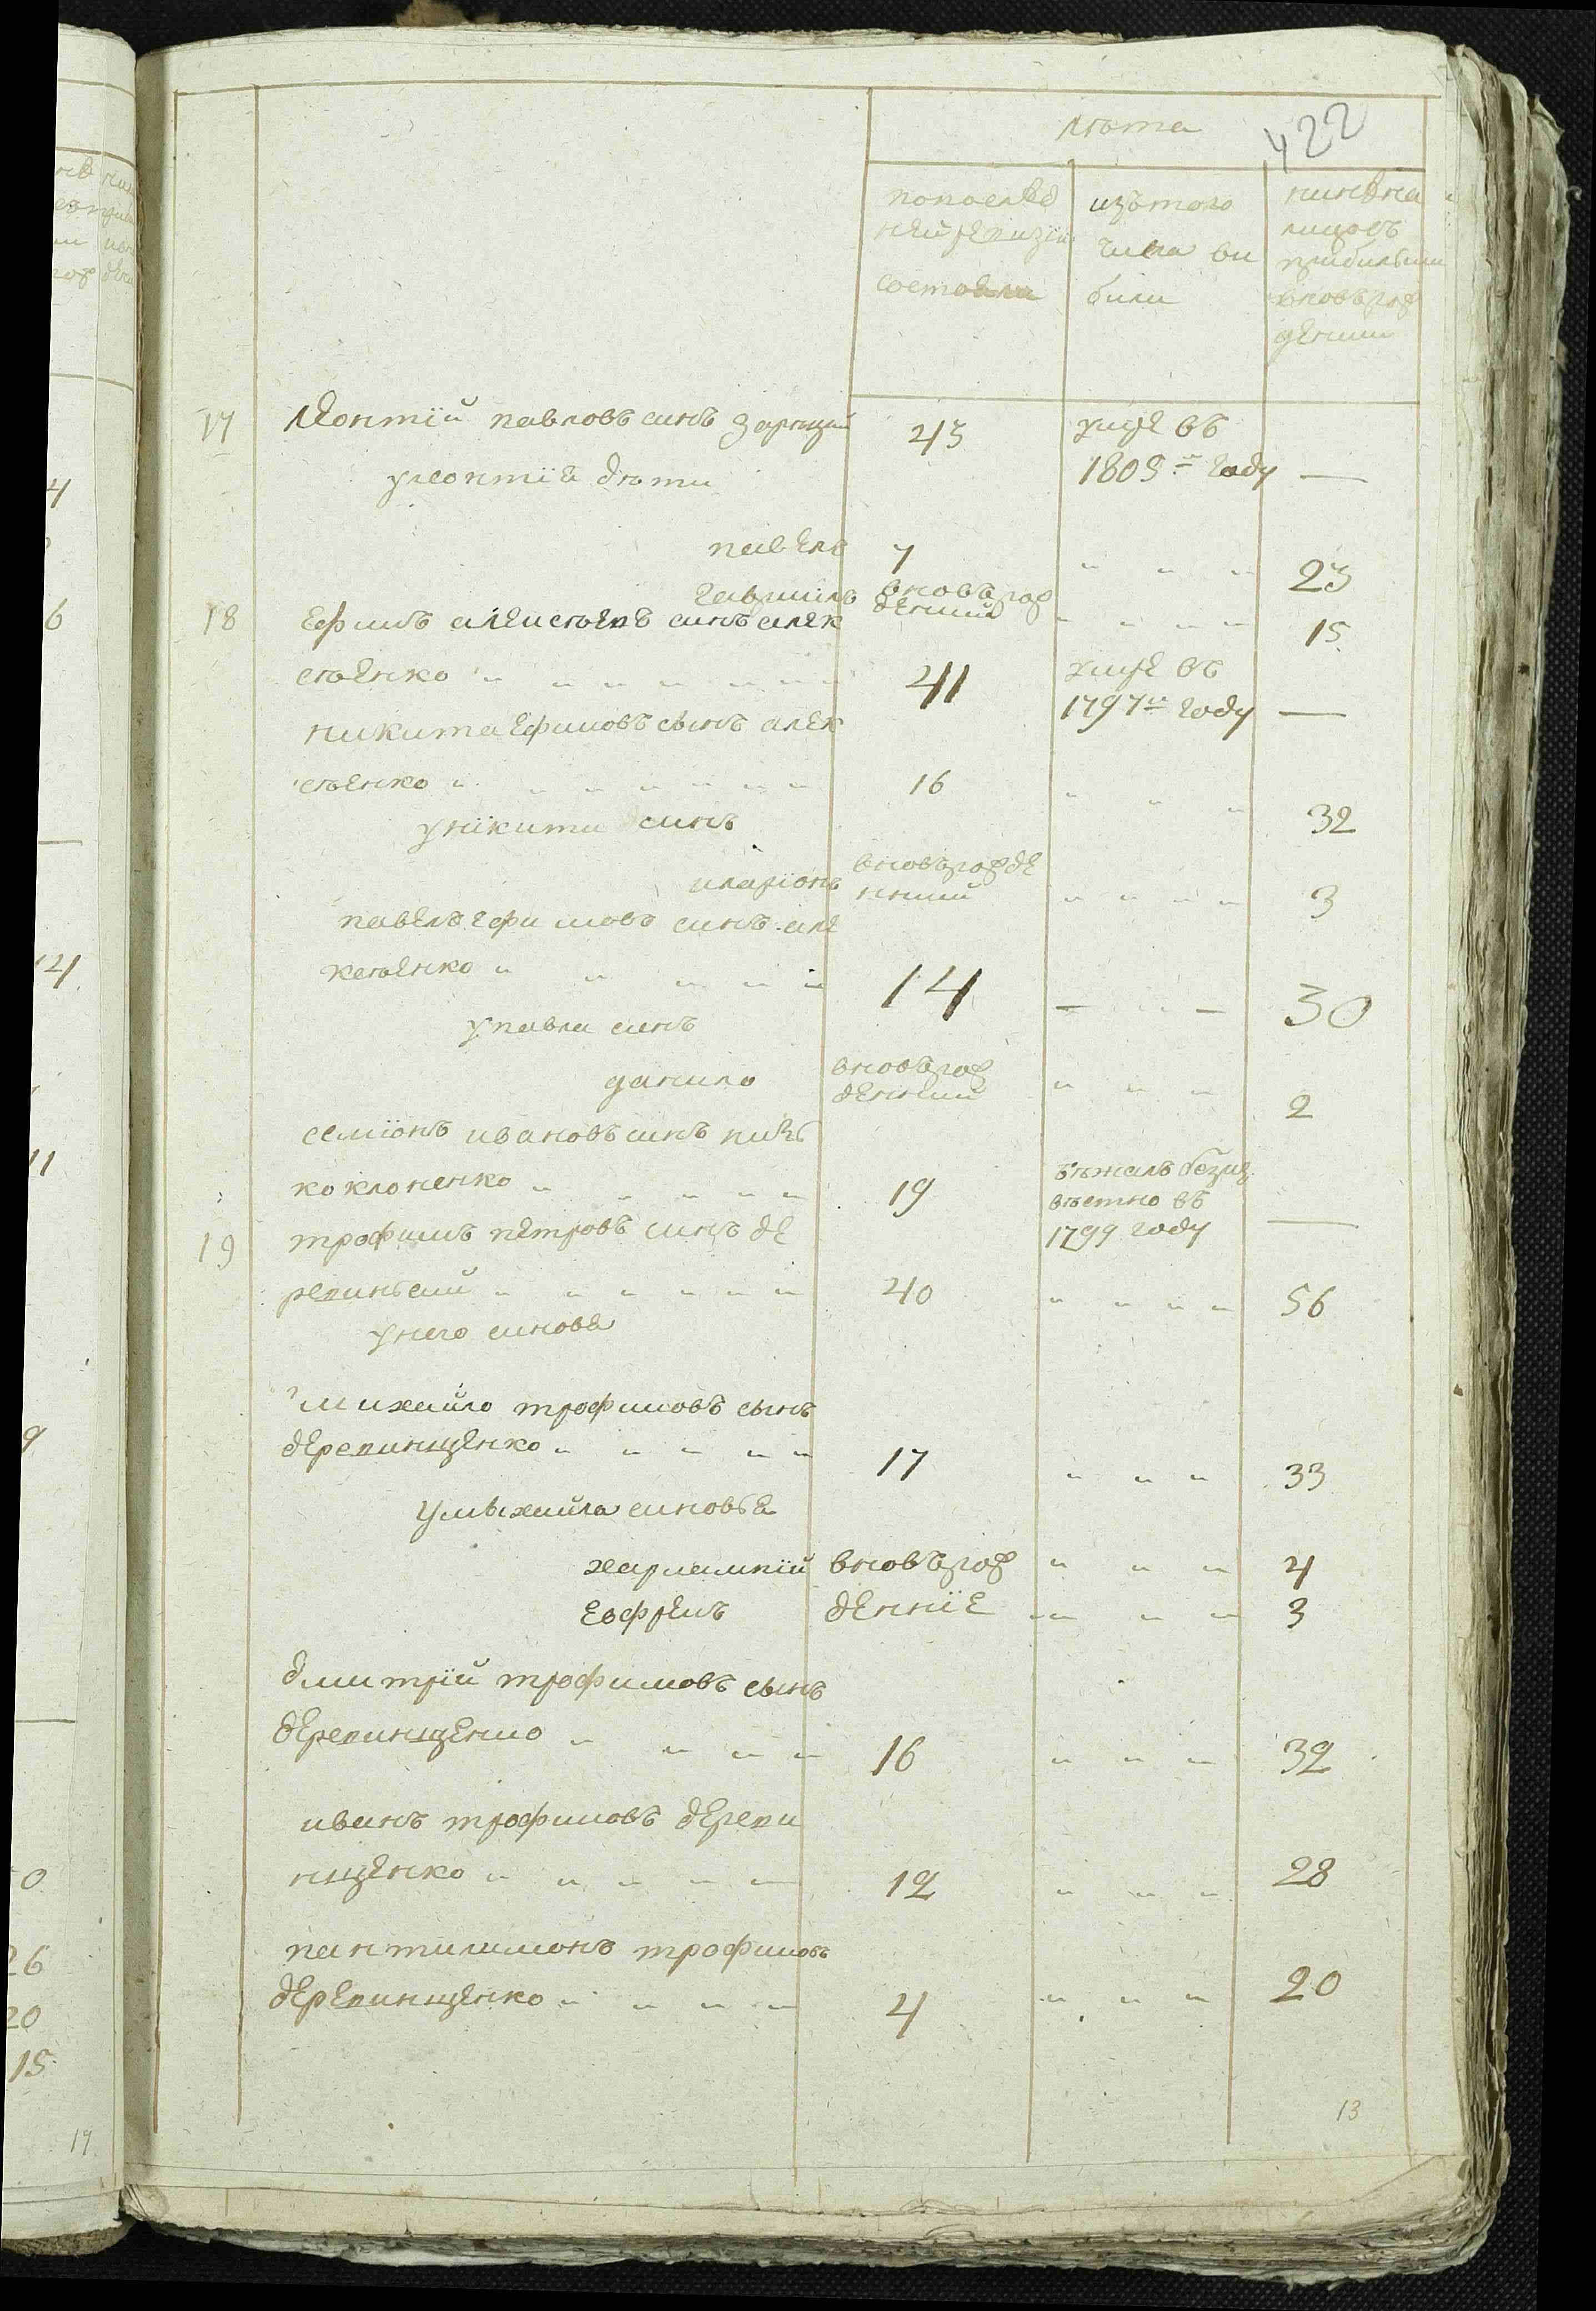 лѣта
422
попослѣд
ней ревизїи
состояло
изътого
числа ви
били
нинѣ на
лицо съ
прибилыми
вновь рож
дении
17 Леонтїй павловъ синъ 43 умре въ
у леонтїя дѣти 1805 году —
павелъ 7 " " " 23
гавриилъ вновь рож
18 Ефимъ алексѣевъ синъ алек денний " " " " 15
сѣенко " " " " " " 41 умре въ
1797 году —
никита Ефимовъ сынъ алек
сѣенко " " " " " " " 16 " " " 32
у нікити синъ
иларіонъ вновь рожде
нний " " " " 3
павелъ ефимовъ синъ але
ксѣенко " " " " " 14 — " — 30
у павла синъ
данило вновь рож
денний " " " 2
семїонъ ивановъ синъ
коклоненко " " " " " 19 бѣжалъ безиз
вѣстно въ
1799 году —
19 трофимъ петровъ синъ де
ревинский " " " " " " 40 " " " " 56
у него синовя
михайло трофимовъ сынъ
деревинщенко " " " " " 17 " " " 33
у мыхайла синовья
харлампїй вновь рож " " " 4
Евфремъ деннїе " " " 3
дмитрїй трофимовъ сынъ
деревинщенко " " " " 16 " " " 32
иванъ трофимовъ дереви
нщенко " " " " " 12 " " " 28
пантилимонъ трофимовъ
деревинщенко " " " " 4 " " " 20
13